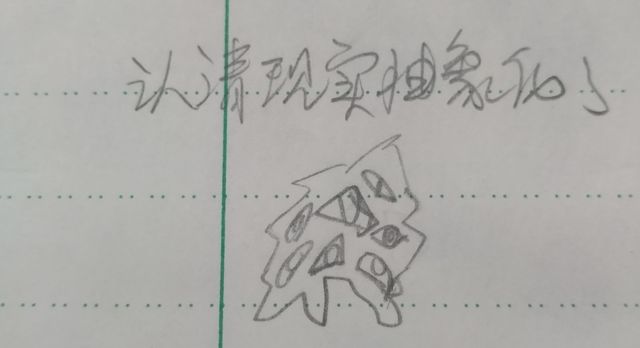 认清现实抽象化了